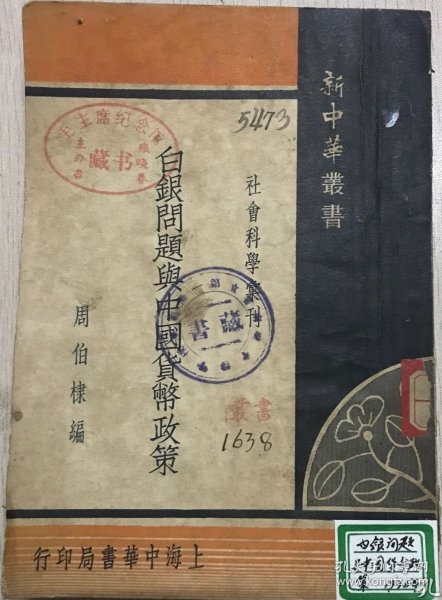 新中華叢書
社會科學彙刊
白銀問題與中國貨幣政策
周伯棣編
上海中華書局印行
5473
藏书
藏書
叢書
1638
白銀问題